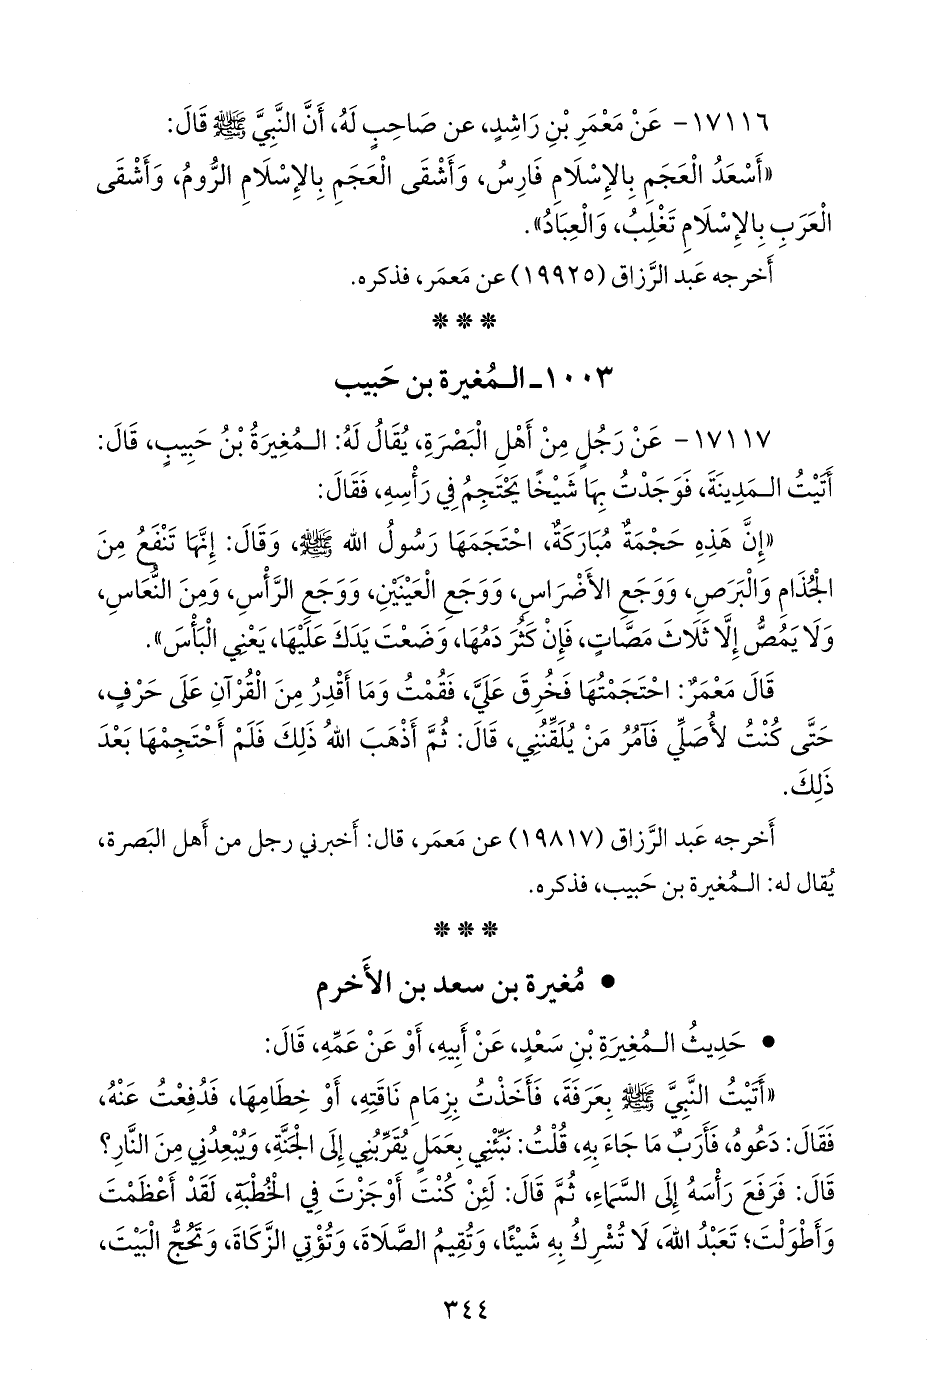 ١٧١١٦- عَنْ مَعْمَرِ بْنِ رَاشِدٍ، عن صَاحِبٍ لَهُ، أَنَّ النَّبِيَّ ﷺ قَالَ:
«أَسْعَدُ الْعَجَمِ بِالإِسْلَامِ فَارِسُ، وَأَشْقَى الْعَجَمِ بِالإِسْلَامِ الرُّومُ، وَأَشْقَى
الْعَرَبِ بِالإِسْلَامِ تَغْلِبُ، وَالْعِبَادُ».
أَخرجه عَبد الرَّزاق (١٩٩٢٥) عن مَعمَر، فذكره.
* * *
١٠٠٣- الـمُغيرة بن حَبيب
١٧١١٧- عَنْ رَجُلٍ مِنْ أَهْلِ الْبَصْرَةِ، يُقَالُ لَهُ: الـمُغِيرَةُ بْنُ حَبِيبٍ، قَالَ:
أَتَيْتُ الـمَدِينَةَ، فَوَجَدْتُ بِهَا شَيْخًا يَحْتَجِمُ فِي رَأْسِهِ، فَقَالَ:
«إِنَّ هَذِهِ حَجْمَةٌ مُبَارَكَةٌ، احْتَجَمَهَا رَسُولُ الله ﷺ، وَقَالَ: إِنَّهَا تَنْفَعُ مِنَ
الْجُذَامِ وَالْبَرَصِ، وَوَجَعِ الأَضْرَاسِ، وَوَجَعِ الْعَيْنَيْنِ، وَوَجَعِ الرَّأْسِ، وَمِنَ النُّعَاسِ،
وَلَا يَمُصُّ إِلَّا ثَلَاثَ مَصَّاتٍ، فَإِنْ كَثُرَ دَمُهَا، وَضَعْتَ يَدَكَ عَلَيْهَا، يَعْنِي الْبَأْسَ».
قَالَ مَعْمَرٌ: احْتَجَمْتُهَا فَخُرِقَ عَلَيَّ، فَقُمْتُ وَمَا أَقْدِرُ مِنَ الْقُرْآنِ عَلَى حَرْفٍ،
حَتَّى كُنْتُ لأُصَلِّي فَآمُرُ مَنْ يُلَقِّنُنِي، قَالَ: ثُمَّ أَذْهَبَ اللهُ ذَلِكَ فَلَمْ أَحْتَجِمْهَا بَعْدَ
ذَلِكَ.
أَخرجه عَبد الرَّزاق (١٩٨١٧) عن مَعمَر، قال: أَخبرني رجل من أَهل البَصرة،
يُقال له: الـمُغيرة بن حَبيب، فذكره.
* * *
• مُغيرة بن سعد بن الأَخرم
• حَدِيثُ الـمُغِيرَةِ بْنِ سَعْدٍ، عَنْ أَبِيهِ، أَوْ عَنْ عَمِّهِ، قَالَ:
«أَتَيْتُ النَّبِيَّ ﷺ بِعَرَفَةَ، فَأَخَذْتُ بِزِمَامِ نَاقَتِهِ، أَوْ خِطَامِهَا، فَدُفِعْتُ عَنْهُ،
فَقَالَ: دَعُوهُ، فَأَرَبٌ مَا جَاءَ بِهِ، قُلْتُ: نَبِّئْنِي بِعَمَلٍ يُقَرِّبُنِي إِلَى الْجَنَّةِ، وَيُبْعِدُنِي مِنَ النَّارِ؟
قَالَ: فَرَفَعَ رَأْسَهُ إِلَى السَّمَاءِ، ثُمَّ قَالَ: لَئِنْ كُنْتَ أَوْجَزْتَ فِي الْخُطْبَةِ، لَقَدْ أَعْظَمْتَ
وَأَطْوَلْتَ؛ تَعَبْدُ اللهَ، لَا تُشْرِكُ بِهِ شَيْئًا، وَتُقِيمُ الصَّلَاةَ، وَتُؤْتِي الزَّكَاةَ، وَتَحُجُّ الْبَيْتَ،
٣٤٤